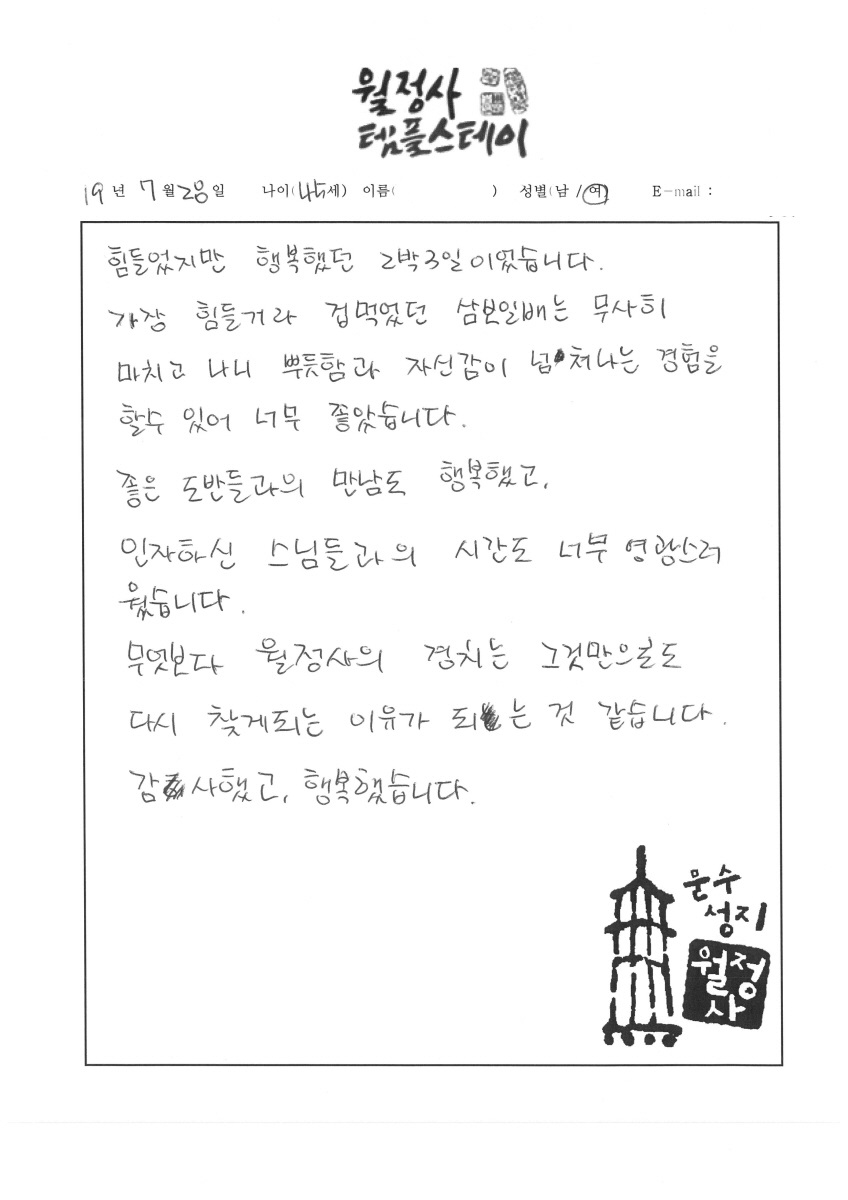 월정사
템플스테이
19 년 7 월 28 일 나이(45세) 이름( ) 성별(남 / 여) E-mail :
힘들었지만 행복했던 2박3일이었습니다.
가장 힘들거라 겁먹었던 삼보일배는 무사히
마치고 나니 뿌듯함과 자신감이 넘쳐나는 경험을
할수 있어 너무 좋았습니다.
좋은 도반들과의 만남도 행복했고,
인자하신 스님들과의 시간도 너무 영광스러
웠습니다.
무엇보다 월정사의 경치는 그것만으로도
다시 찾게되는 이유가 되는 것 같습니다.
감사했고, 행복했습니다.
문수
성지
월정
사